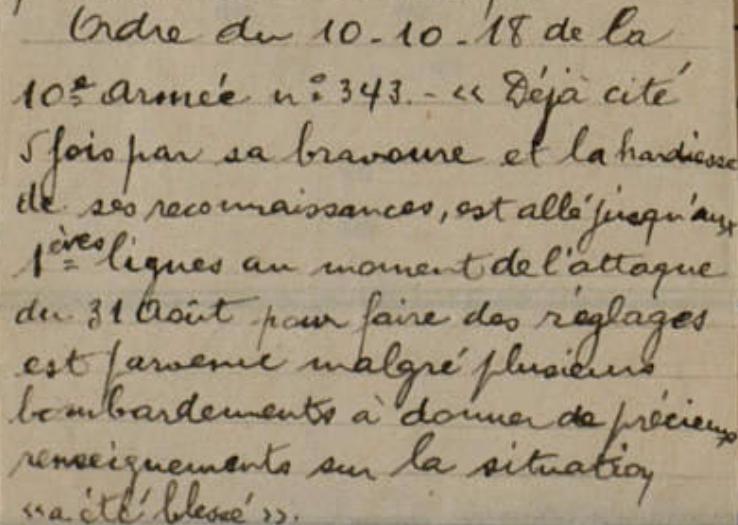 Ordre du 10-10-18 de la
10e Armée n° 343. - « Déjà cité
5 fois par sa bravoure et la hardiesse
de ses reconnaissances, est allé jusqu'aux
1ères lignes au moment de l'attaque
du 31 Août pour faire des réglages
est parvenu malgré plusieurs
bombardements à donner de précieux
renseignements sur la situation
« a été blessé ».